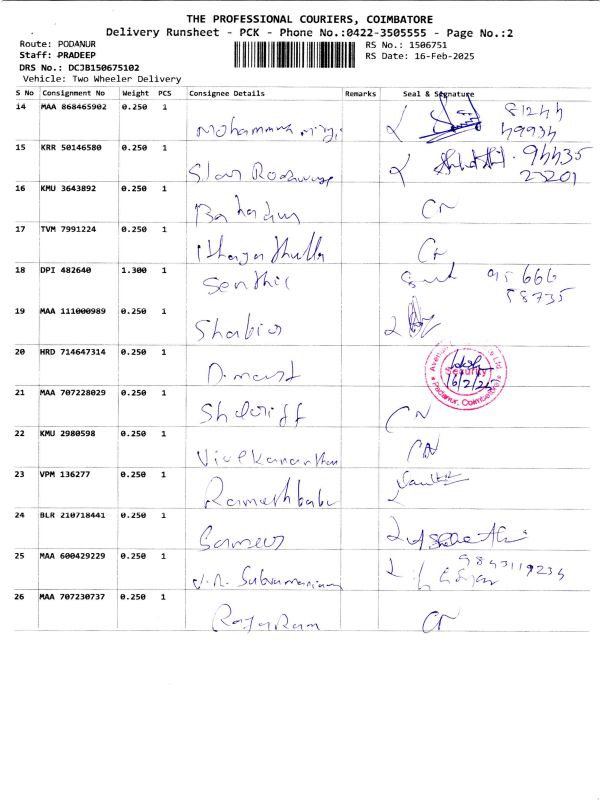 THE PROFESSIONAL COURIERS, COIMBATORE
Delivery Runsheet - PCK - Phone No.:0422-3505555 - Page No.:2
Route: PODANUR
RS No.: 1506751
Staff: PRADEEP
RS Date: 16-Feb-2025
DRS No.: DCJB150675102
Vehicle: Two Wheeler Delivery
S No Consignment No Weight PCS Consignee Details Remarks Seal & Signature
14 MAA 868465902 0.250 1 81244
49934
15 KRR 50146580 0.250 1 94435
23201
16 KMU 3643892 0.250 1 Bahadur CN
17 TVM 7991224 0.250 1 CN
18 DPI 482640 1.300 1 Senthil 95 666
58735
19 MAA 111000989 0.250 1
20 HRD 714647314 0.250 1 D.mart Security Podanur, Coimbatore
21 MAA 707228029 0.250 1 Sheriff CN
22 KMU 2980598 0.250 1 CN
23 VPM 136277 0.250 1 Rameshbabu
24 BLR 210718441 0.250 1 Sameer
25 MAA 600429229 0.250 1 V.R. Subramaniam 9843119234
26 MAA 707230737 0.250 1 RajaRam CN